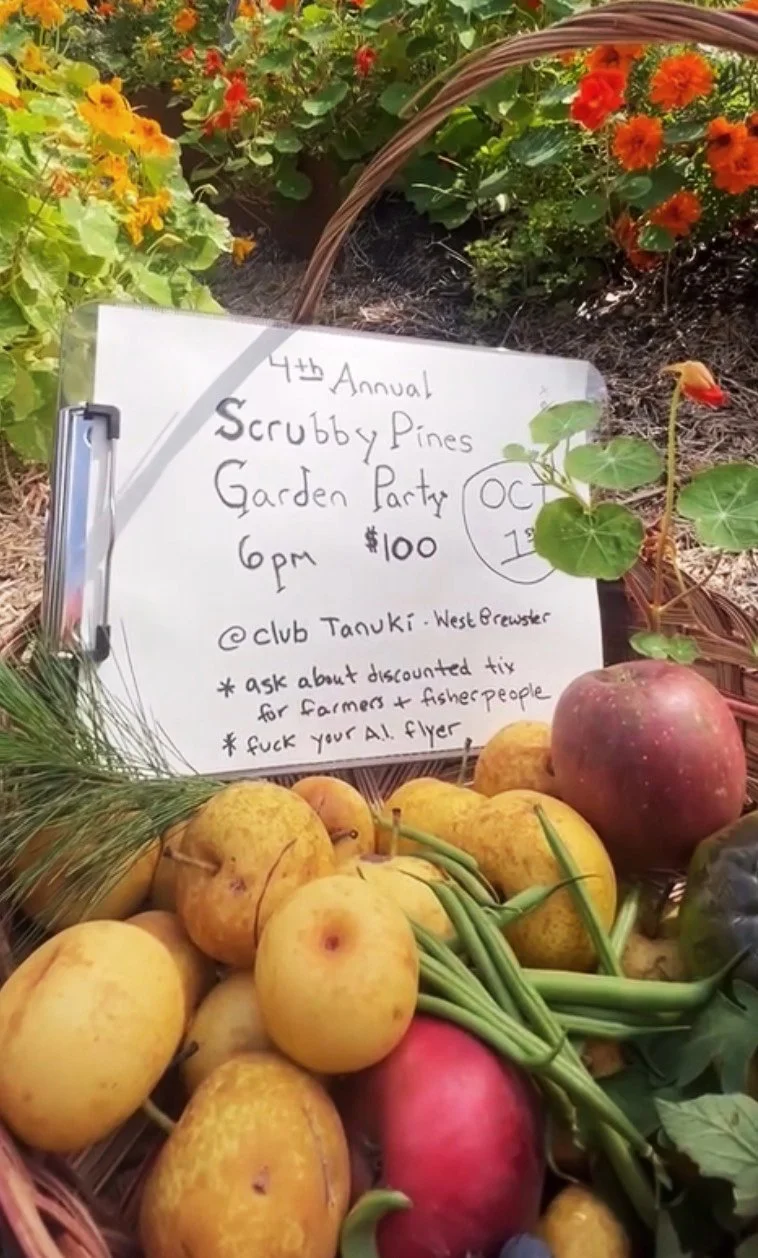 4th Annual
Scrubby Pines
Garden Party
OCT
1st
6pm $100
@club Tanuki · West Brewster
* ask about discounted tix
for farmers + fisherpeople
* fuck your A.I. flyer